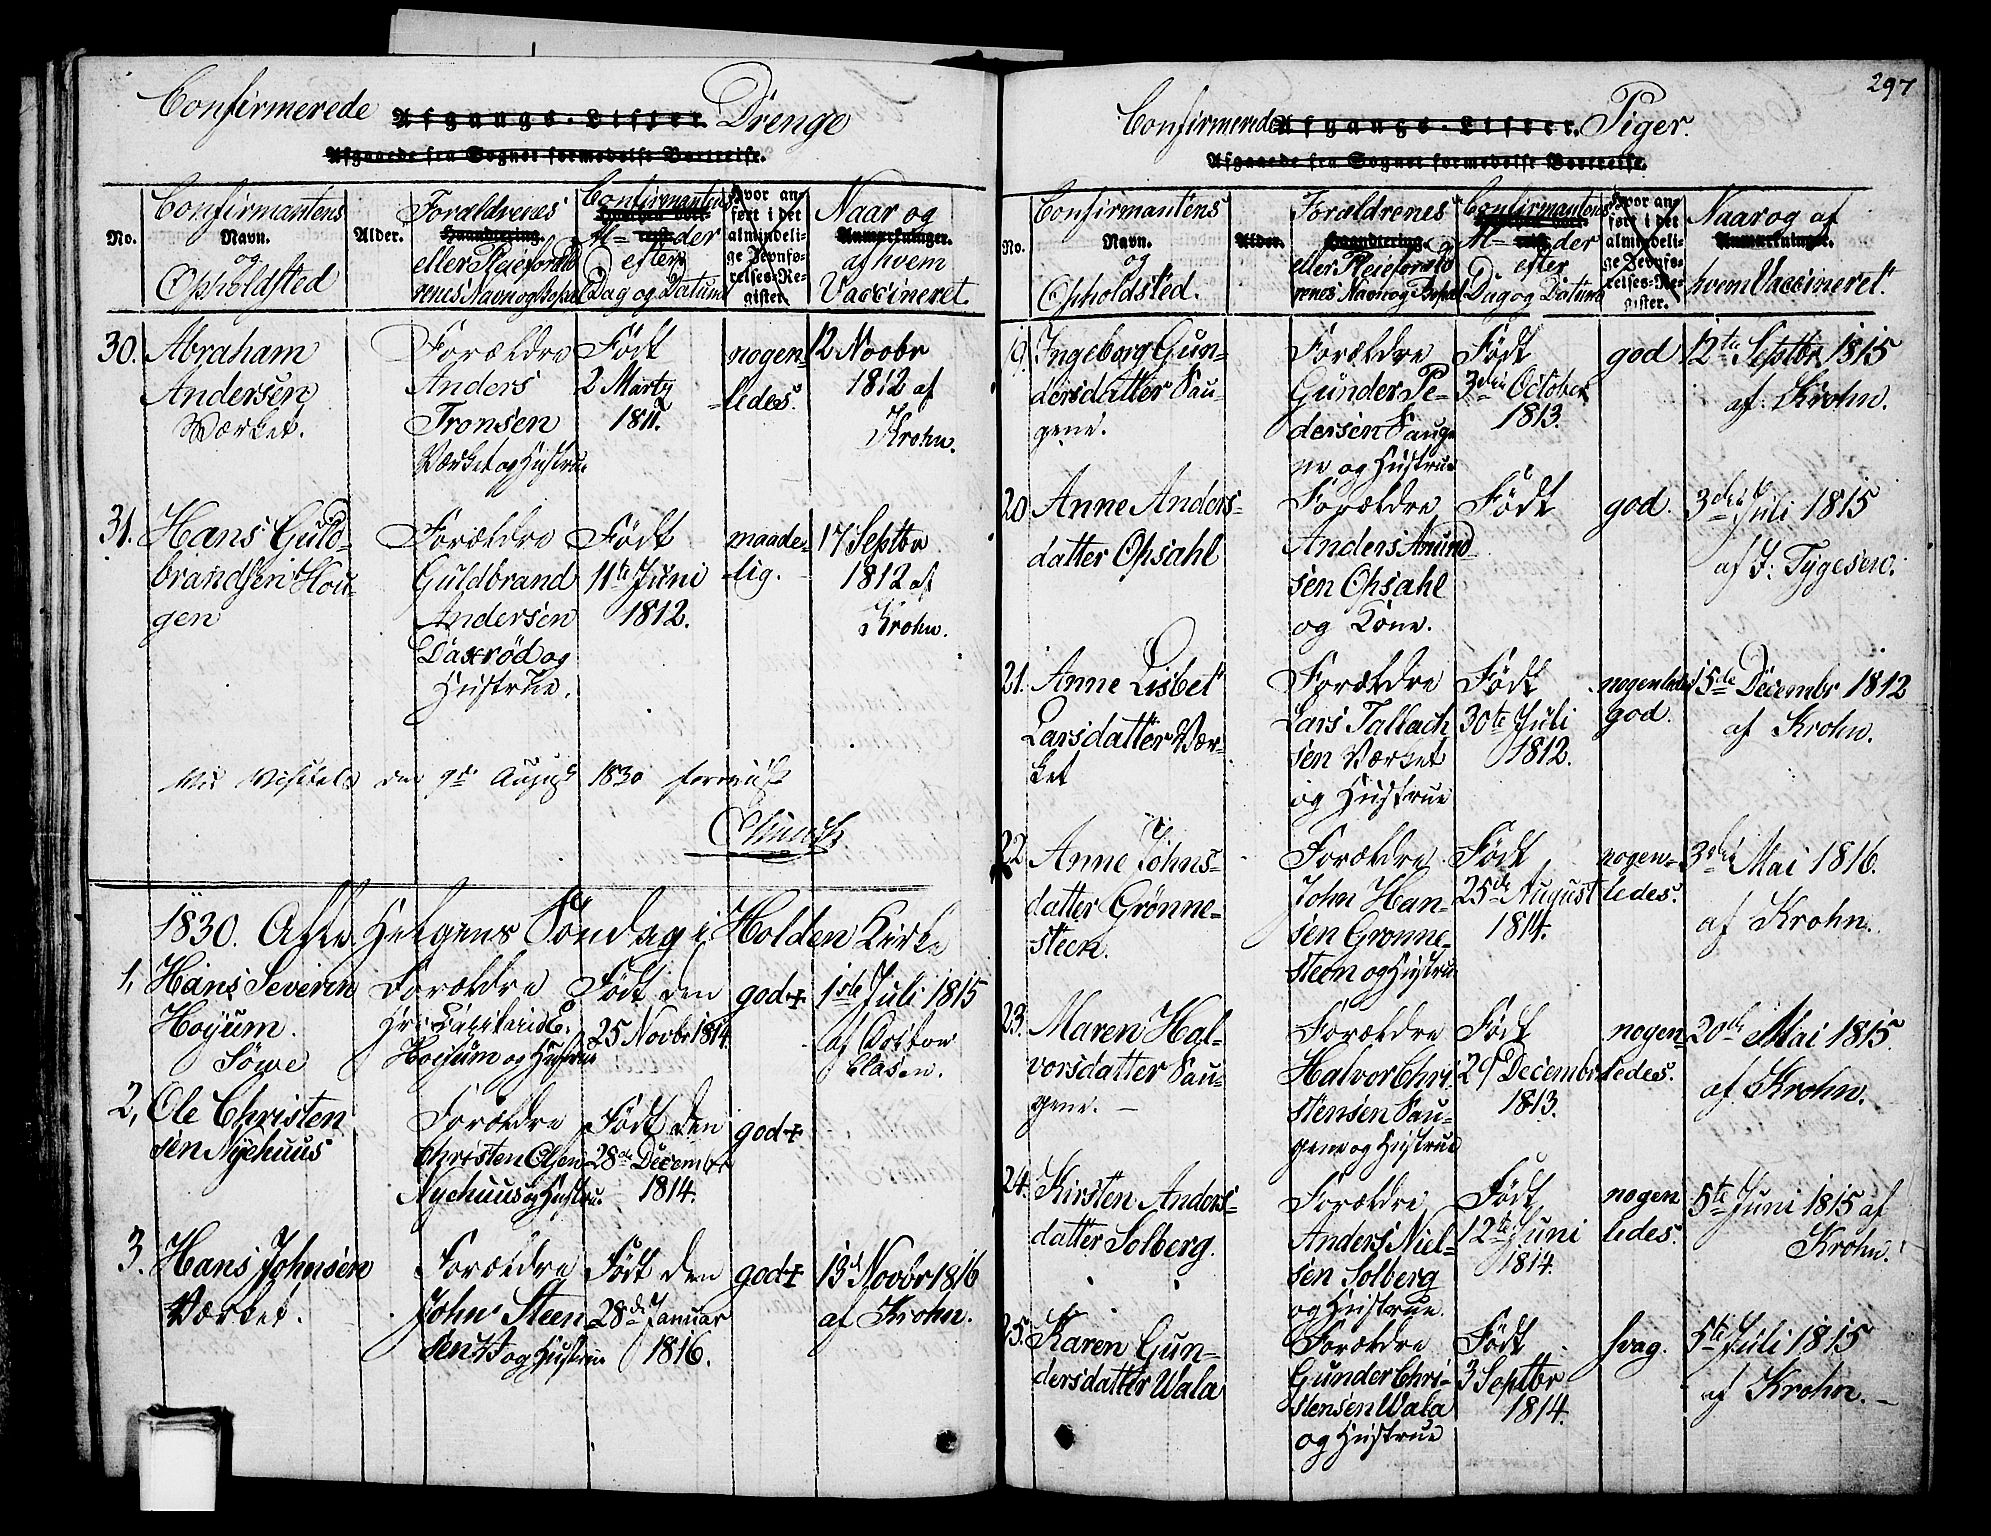 Confirmerede Afgangs-Lister. Drenge
Afgaaede fra Sognet formedelst Bortreise.
No.
Confirmantens
Navn.
og
Opholdsted
Alder.
Forældrenes
Haandtering.
eller Pleieforæld
renes Navn og Bopæl
Confirmantens
Hvorhen bort-
reist.
der
efter
Dag og Datum
Hvor an-
ført i det
almindeli-
ge Jevnfø-
relses-Re-
gister.
Naar og
Anmærkninger.
af hvem
Vaccineret.
30. Abraham
Andersen
Værket.
Forældre
Anders
Tronsen
Værket og Hustrue
Født
2 Marty
1811.
nogen-
ledes.
12 Novbr
1812 af
Krohn.
31. Hans Guld-
brandsen Hou-
gen
Forældre
Guldbrand
Andersen
Daxrød og
Hustrue.
Født
11te Juni
1812.
maade-
lig.
17 Septbr
1812 af
Krohn.
Ved Visitats den 9de August 1830 foreviist
Munch
1830. Alle Helgens Søndag i Holden Kirke
1, Hans Severin
Hoyum.
Søwe
Forældre
Hoyum og Hustrue
Født den
25 Novbr 1814.
god+
1ste Juli 1815
af Doctor
Clasen.
2, Ole Christen
sen Nyehuus
Forældre
Christen Olsen
Nyehuus og Hustru.
Født den
28de Decembr
1814.
god+
3. Hans Johnsen
Værket.
Forældre
John Steen-
sen og Hustrue
Født den
28de Januar
1816.
god+
13d Novbr 1816
af Krohn.
297
Confirmerede Afgangs-Lister. Piger.
Afgaaede fra Sognet formedelst Bortreise.
No.
Confirmantens
Navn.
og
Opholdsted.
Alder.
Forældrenes
Haandtering.
eller Pleieforæld
renes Navn og Bopæl
Confirmantens
Hvorhen bort-
reist.
der
efter
Dag og Datum
Hvor an-
ført i det
almindeli-
ge Jevnfø-
relses-Re-
gister.
Naar og af
Anmærkninger.
hvem Vaccineret.
19. Ingeborg Gun-
dersdatter Sau-
gene.
Forældre
Gunder Pe-
dersen Sauge
ne og Hustrue
Født
3die October
1813.
god
12te Septbr 1815
af Krohn.
20 Anne Anders-
datter Opsahl
Forældre
Anders Amund-
sen Opsahl
og Kone.
Født
god.
3die Juli 1815
af J: Tygesen.
21. Anne Lisbet
Larsdatter Vær-
ket
Forældre
Lars Tallach
sen Værket
og Hustrue
Født
30te Juli
1812.
nogenledes
god.
15de Decembr 1812
af Krohn.
22. Anne Johns-
datter Grønne-
steen.
Forældre
John Han-
sen Grønne-
steen og Hustrue
Født
25de August
1814.
nogen-
ledes.
3die Mai 1816.
af Krohn.
23. Maren Hal-
vorsdatter Sau-
gene.
Forældre
Halvor Chri
stensen Sau-
gene og Hustrue
Født
29 Decembr
1813.
nogen-
ledes.
20de Mai 1815
af Krohn.
24. Kirsten Anders-
datter Solberg.
Forældre
Anders Niel-
sen Solberg
og Hustrue.
Født
12te Juni
1814.
nogen
ledes.
5te Juni 1815 af
Krohn.
25. Karen Gun-
dersdatter Wala
Forældre
Gunder Chri-
stensen Wala
og Hustrue
Født
3 Septbr
1814.
svag.
5te Juli 1815
af Krohn.